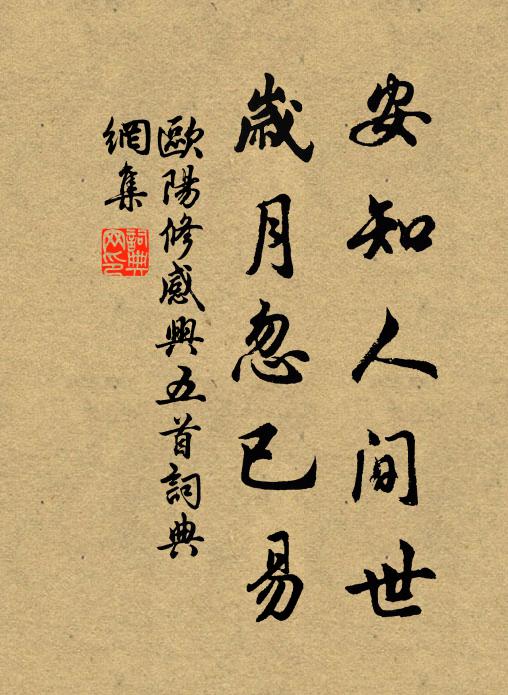 安知人间世
歲月忽已易
歐陽修感興五首詞典
網集
詞典
网印